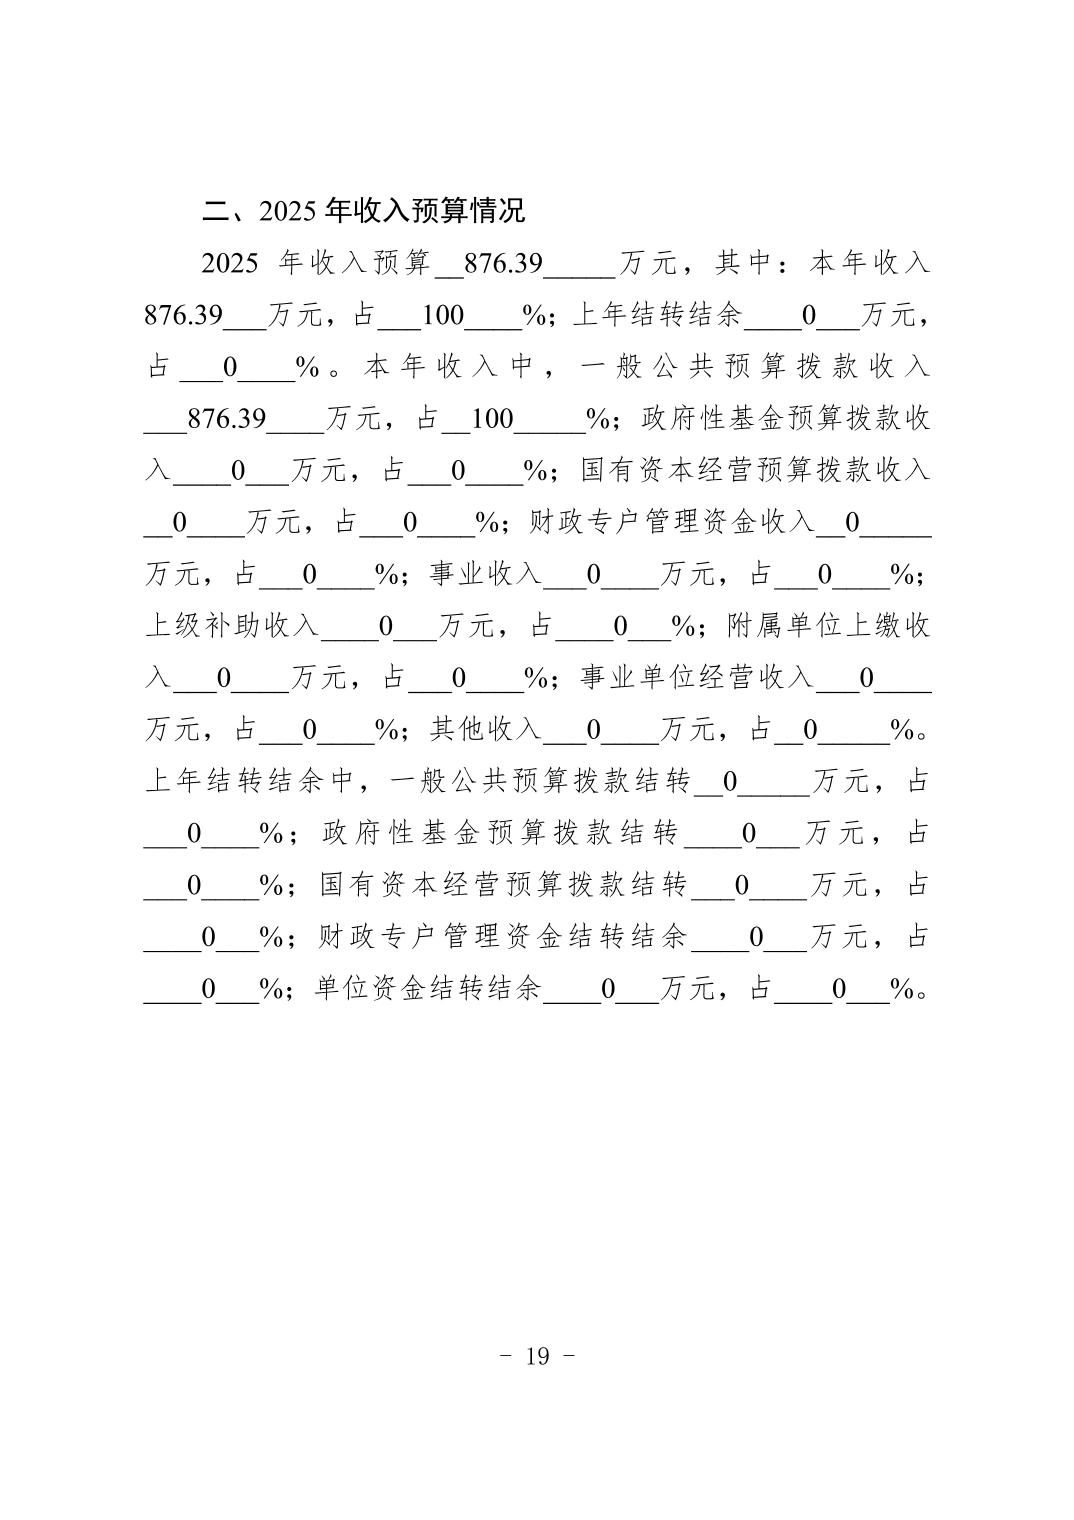 二、2025 年收入预算情况
2025 年收入预算__876.39_____万元，其中：本年收入
876.39___万元，占___100____%；上年结转结余____0___万元，
占___0____%。本年收入中，一般公共预算拨款收入
___876.39____万元，占__100_____%；政府性基金预算拨款收
入____0___万元，占___0____%；国有资本经营预算拨款收入
__0____万元，占___0____%；财政专户管理资金收入__0_____
万元，占___0____%；事业收入___0____万元，占___0____%；
上级补助收入____0___万元，占____0___%；附属单位上缴收
入___0____万元，占___0____%；事业单位经营收入___0____
万元，占___0____%；其他收入___0____万元，占__0_____%。
上年结转结余中，一般公共预算拨款结转__0_____万元，占
___0____%；政府性基金预算拨款结转____0___万元，占
___0____%；国有资本经营预算拨款结转___0____万元，占
____0___%；财政专户管理资金结转结余____0___万元，占
____0___%；单位资金结转结余____0___万元，占____0___%。
- 19 -